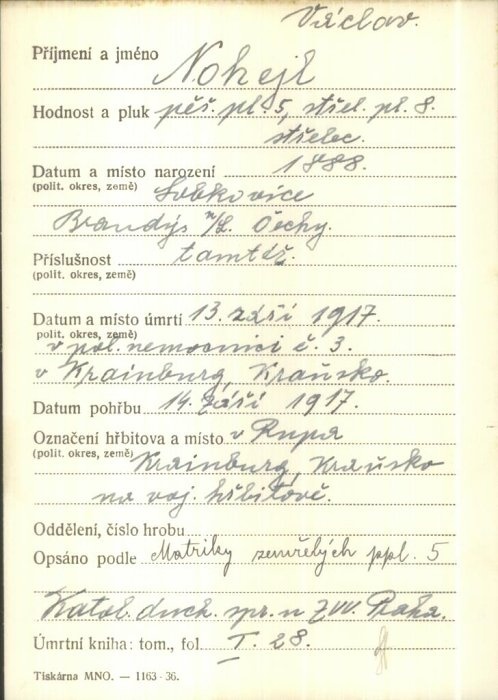 Václav.
Příjmení a jméno Nohejl
Hodnost a pluk pěš. pl. 5, střel. pl. 8.
střelec.
Datum a místo narození 1888.
(polit. okres, země) Lobkovice
Brandýs n/L. Čechy.
Příslušnost tamtéž.
(polit. okres, země)
Datum a místo úmrtí 13. září 1917.
polit. okres, země)
v pol. nemocnici č. 3.
v Krainburg, Kraňsko.
Datum pohřbu 14. září 1917.
Označení hřbitova a místo v Rupa
(polit. okres, země) Krainburg, Kraňsko
na voj. hřbitově.
Oddělení, číslo hrobu
Opsáno podle Matriky zemřelých ppl. 5
Katol. duch. spr. u ZVV. Praha.
Úmrtní kniha: tom., fol. I. 28.
Tiskárna MNO. — 1163 - 36.